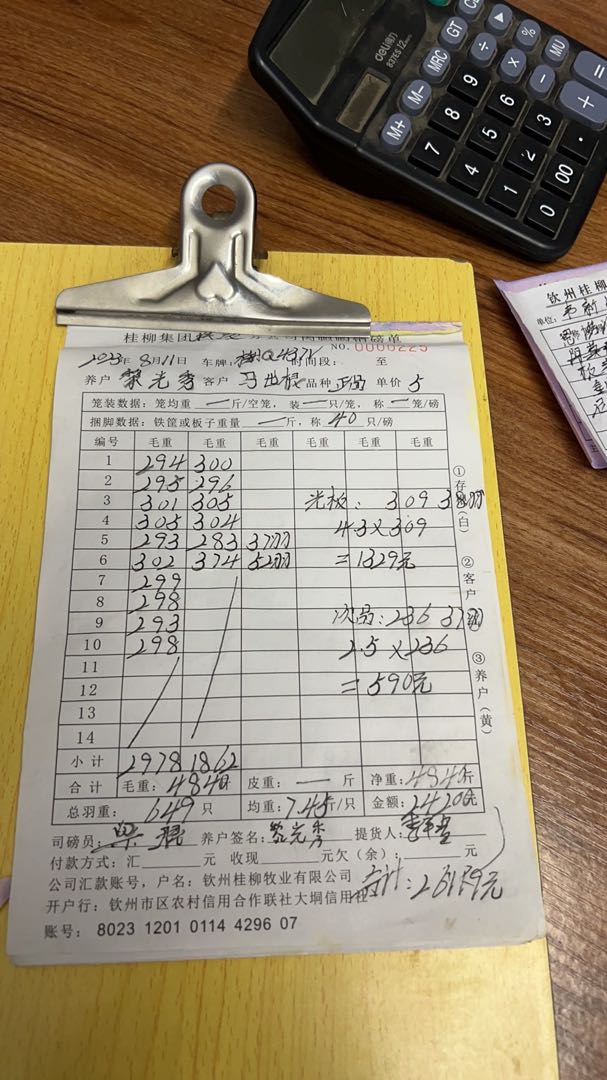 deli得力
837ES 12
GT
÷
%
MU
MRC
×
−
=
M-
9
6
3
+
M+
8
5
2
.
7
4
1
00
0
钦州桂柳
单位:
桂柳集团
NO.0000225
2023年8月11日 车牌: 时间段: 至
养户 黎光秀 客户 马世根 品种 正品 单价 5
笼装数据:笼均重 一 斤/空笼,装 一 只/笼,称 一 笼/磅
捆脚数据:铁筐或板子重量 一 斤,称 40 只/磅
编号 毛重 毛重 毛重 毛重 毛重 毛重
1 294 300
2 295 296
3 301 305 光板: 309 38羽
4 305 304 4.3×309
5 293 283 37羽
6 302 374 52羽 =1329元
7 299
8 298
9 293 次品:236 37羽
10 298 2.5×236
11
12 =590元
13
14
小计 2978 1862
合计 毛重:4840 皮重: 一 斤 净重:4840斤
总羽重: 649 只 均重:7.45斤/只 金额:24200元
司磅员: 养户签名:黎光秀 提货人:
付款方式:汇 元 收现 元欠(余): 元
公司汇款账号,户名:钦州桂柳牧业有限公司 合计:26119元
开户行:钦州市区农村信用合作联社大垌信用社
账号: 8023 1201 0114 4296 07
①存(白)
②客户
③养户(黄)